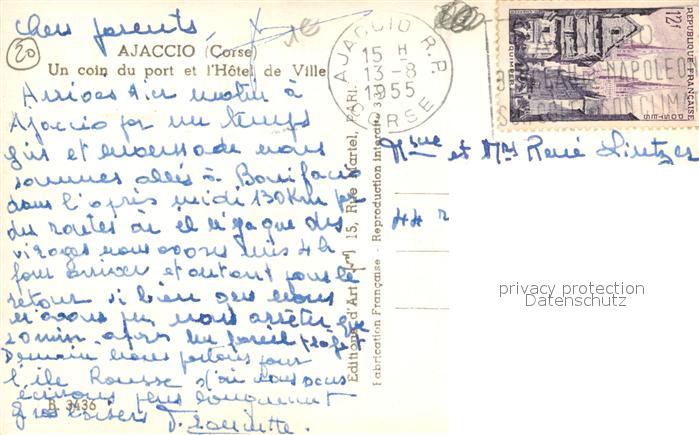 Chers parents
20
AJACCIO (Corse)
Un coin du port et l'Hôtel de Ville
Arrivés hier matin à
Ajaccio par un temps
gris et maussade nous
sommes allés à Bonifacio
dans l'après midi 130 km par
des routes où il n'y a que des
virages nous avons mis 4h
pour arriver et autant pour le
retour si bien que nous
n'avons pu nous arrêter que
20 min. après un pareil
Demain nous partons pour
l'île Rousse d'où nous vous
écrirons plus longuement
gros baisers
B. 3436
Editions d'Art 15, Rue Martel, PARIS
Fabrication Française - Reproduction Interdite
AJACCIO R.P.
15 H
13-8
1955
CORSE
NAPOLEON
CLIMA
REPUBLIQUE FRANÇAISE
12F
POSTES
QUIMPER
et Mr René
44 r
privacy protection
Datenschutz